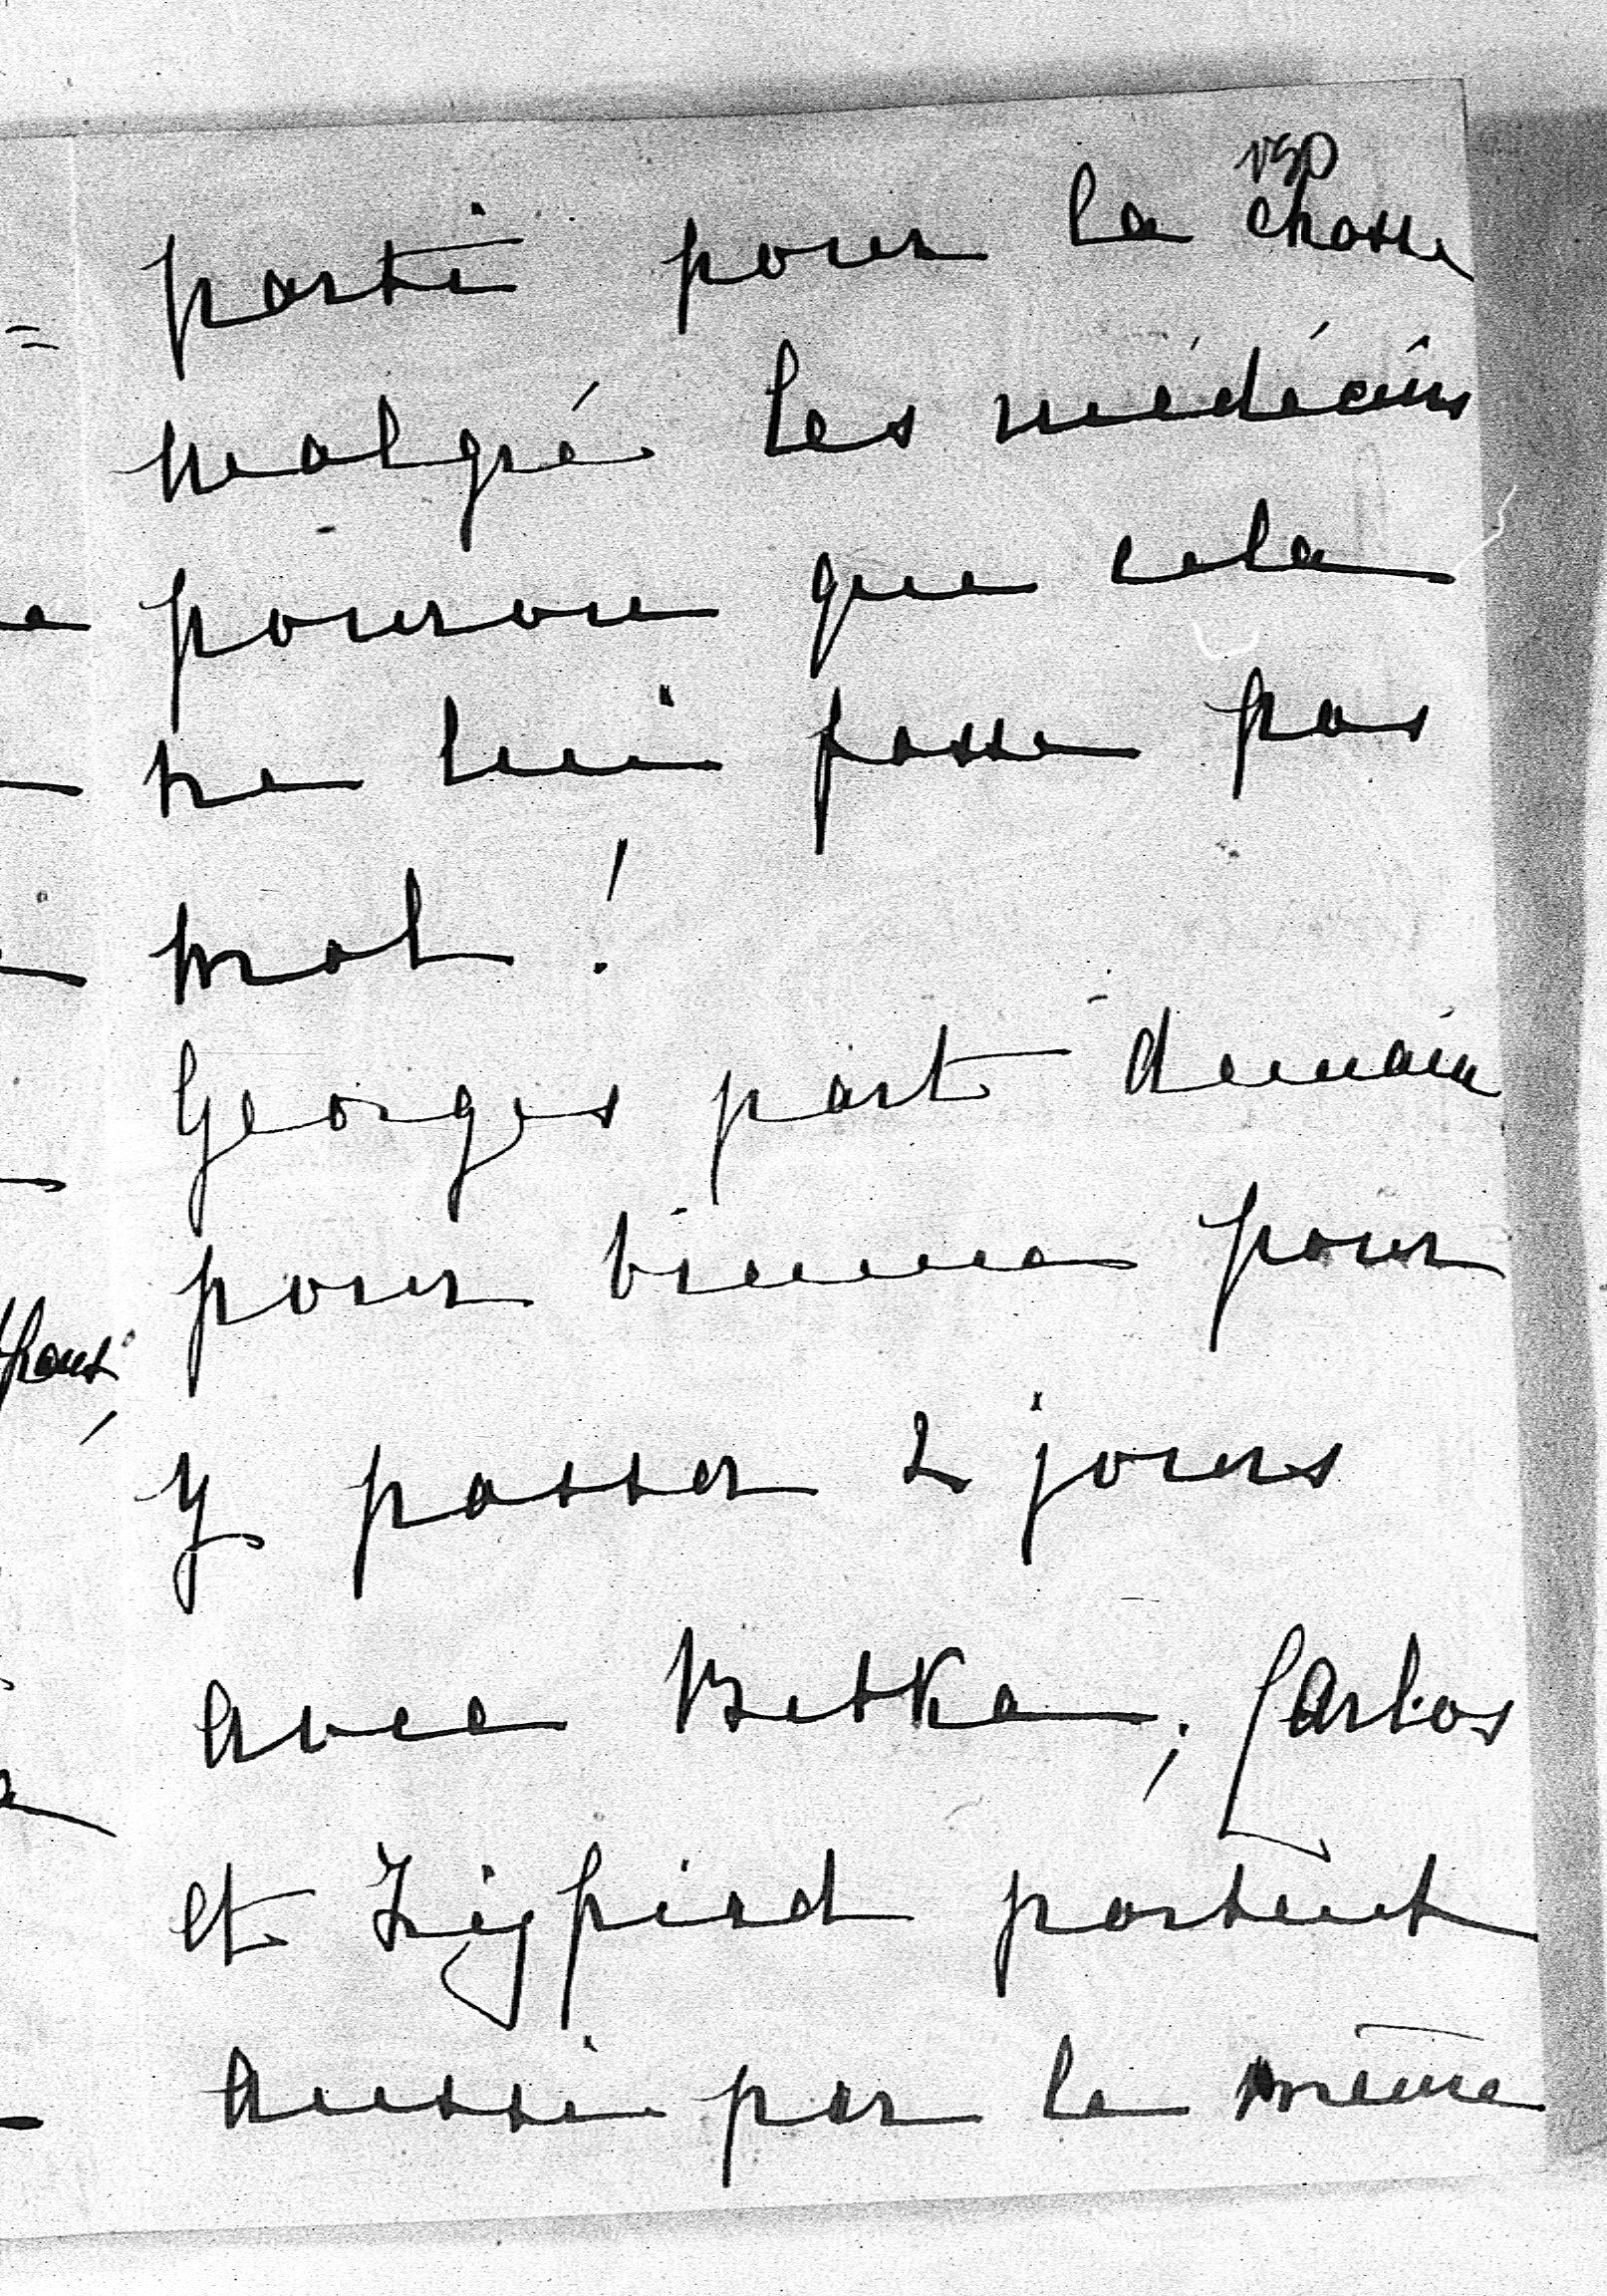 vso
parti pour la chasse
malgré les médécins
pourvu que cela
ne lui fasse pas
mal !
Georges part demain
pour vienne pour
y passer 2 jours
avec Betka, Carlos
et Zigfied partent
aussi par le même